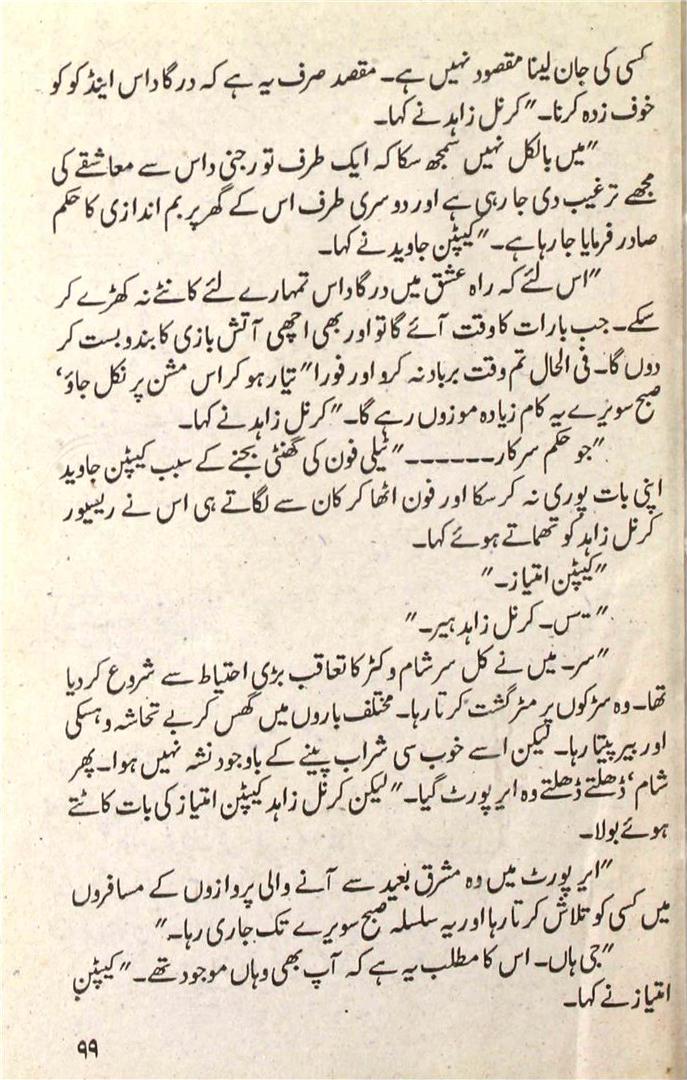 کسی کی جان لینا مقصود نہیں ہے۔ مقصد صرف یہ ہے کہ درگا داس اینڈ کو کو
خوف زدہ کرنا۔" کرنل زاہد نے کہا۔
"میں بالکل نہیں سمجھ سکا کہ ایک طرف تو رجنی داس سے معاشقے کی
مجھے ترغیب دی جا رہی ہے اور دوسری طرف اس کے گھر پر بم اندازی کا حکم
صادر فرمایا جا رہا ہے۔" کیپٹن جاوید نے کہا۔
"اس لئے کہ راہ عشق میں درگا داس تمہارے لئے کانٹے نہ کھڑے کر
سکے۔ جب بارات کا وقت آئے گا تو اور بھی اچھی آتش بازی کا بندوبست کر
دوں گا۔ فی الحال تم وقت برباد نہ کرو اور فورا" تیار ہو کر اس مشن پر نکل جاؤ،
صبح سویرے یہ کام زیادہ موزوں رہے گا۔" کرنل زاہد نے کہا۔
"جو حکم سرکار۔۔۔۔۔۔" ٹیلی فون کی گھنٹی بجنے کے سبب کیپٹن جاوید
اپنی بات پوری نہ کر سکا اور فون اٹھا کر کان سے لگاتے ہی اس نے ریسیور
کرنل زاہد کو تھماتے ہوئے کہا۔
"کیپٹن امتیاز۔"
"یس۔ کرنل زاہد ہیر۔"
"سر۔ میں نے کل سر شام وکٹر کا تعاقب بڑی احتیاط سے شروع کر دیا
تھا۔ وہ سڑکوں پر مٹر گشت کرتا رہا۔ مختلف باروں میں گھس کر بے تحاشہ وہسکی
اور بیر پیتا رہا۔ لیکن اسے خوب سی شراب پینے کے باوجود نشہ نہیں ہوا۔ پھر
شام ڈھلتے ڈھلتے وہ ایر پورٹ گیا۔" لیکن کرنل زاہد کیپٹن امتیاز کی بات کاٹتے
ہوئے بولا۔
"ایر پورٹ میں وہ مشرق بعید سے آنے والی پروازوں کے مسافروں
میں کسی کو تلاش کرتا رہا اور یہ سلسلہ صبح سویرے تک جاری رہا۔"
"جی ہاں۔ اس کا مطلب یہ ہے کہ آپ بھی وہاں موجود تھے۔" کیپٹن
امتیاز نے کہا۔
۹۹